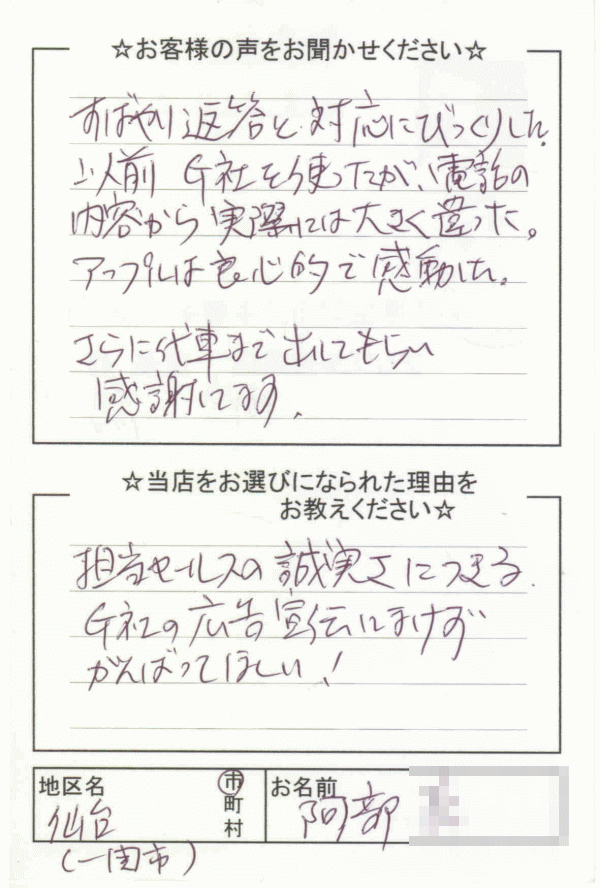 ☆お客様の声をお聞かせください☆
すばやい返答と対応にびっくりした。
以前 G社を使ったが、電話の
内容から実際には大きく違った。
アップルは良心的で感動した。
さらに代車まで出してもらい
感謝してます。
☆当店をお選びになられた理由を
お教えください☆
担当セールスの誠実さにつきる。
G社の広告宣伝にまけず
がんばってほしい！
地区名 仙台 市 町 村 お名前 阿部
(一関市)